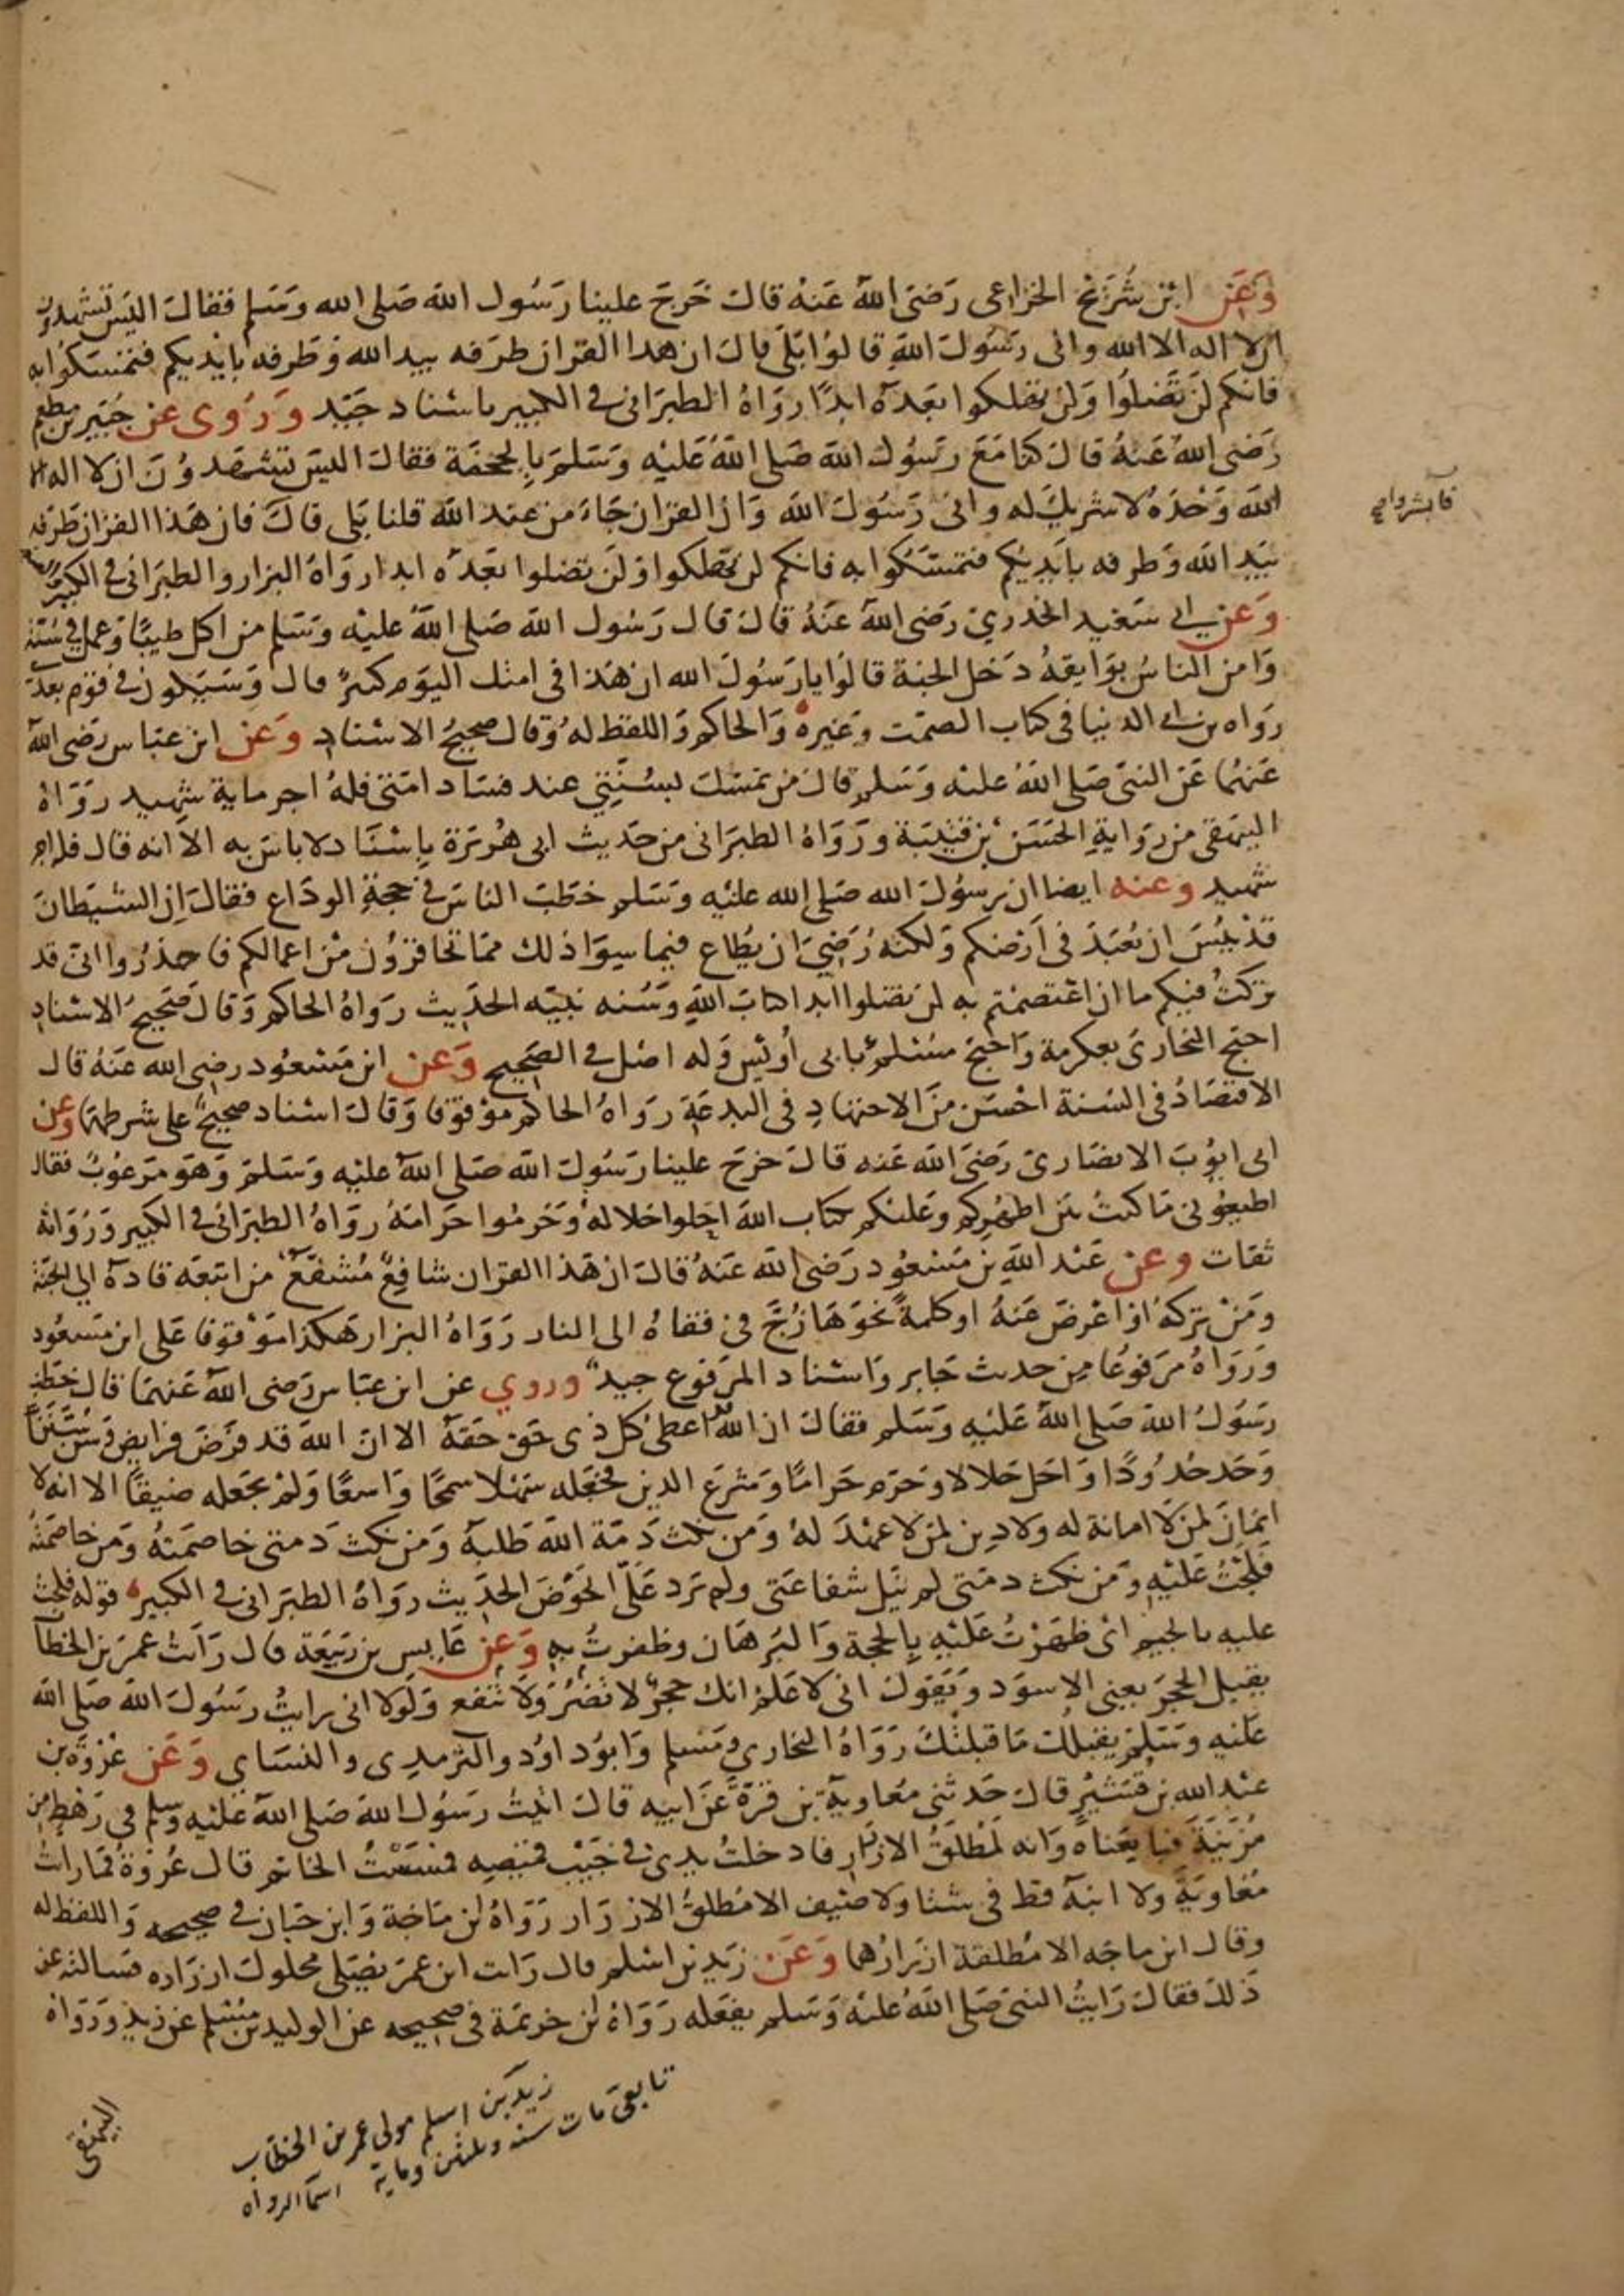 وَعَن ابن شُرَيْح الخزاعي رَضيَ اللهُ عَنهُ قالَ خَرجَ علينا رَسُول الله صَلى الله وَسَلم فقالَ اليسَ تَشهدون
ان لا اله الا الله واني رَسُولَ اللهِ قالوُا بَلَى قالَ ان هذا القران طرَفه بيد الله وَطَرفه بايْديكم فتمسَكوُا به
فانكم لنَ تَضلوُا وَلن تهلكوا بَعَدَهُ ابدًا روَاهُ الطبرَاني في الكبير باسْناد جَيّد وَرُوى عن جُبَير بن مطعم
رَضى اللهُ عَنهُ قالَ كنا مَعَ رَسُول الله صَلى اللهُ عَليْه وَسَلمَ بالجحفَة فقالَ اليسَ تشهَدوُنَ ان لا اله الا
الله وَحْدَهُ لا شريكَ له واني رَسُولَ الله وَان القرَان جَاءَ من عند الله قلنا بَلى قالَ فان هَذا القران طَرَفه
بيَدِ الله وَطرفه بايَديكم فتمسَّكوُا به فانكم لن تهلكوا وَلَن تضلوا بَعَدهُ ابدا روَاهُ البزار والطبَراني في الكبير والصغير
وَعَن ابي سَعيد الخدري رَضى اللهُ عَنهُ قالَ قال رَسُول الله صَلى اللهُ عليْه وَسَلم من اكل طيبًا وَعمل في سُنة
وَامن الناسُ بوَايقهُ دَخل الجنة قالوُا يا رَسُولَ الله ان هَذا في امتك اليَوم كثيرٌ قال وَسَيَكون في قوم بعدي
رواه بن ابي الدنيا في كتاب الصمت وَغيره وَالحاكم وَاللفظ لهُ وَقال صحيحُ الاسناد وَعَن ابن عبَاس رَضى الله
عَنهُما عَن النبي صَلى اللهُ عليْه وَسَلم قالَ من تمسَّك بسُنَّتي عند فسَاد امَتي فلهُ اجر ماية شهيد روَاهُ
البيهقي من روَايةِ الحَسَن بن قتيبَة ورَوَاهُ الطبرَاني من حَديث ابي هُريرَة بإسْنَاد لا باسَ به الا انه قال فله اجر
شهيد وعنه ايضا ان رسوُلَ الله صَلى الله عليْه وَسَلم خطَبَ الناسَ في حجةِ الوداع فقالَ ان الشيطانَ
قدْ يئسَ ان يُعبَدَ في أَرْضكم وَلكنهُ رَضيَ ان يُطاع فيما سِوَا ذلك ممَا تحَاقرُون منْ اعمالكم فاحذرُوا اني قد
تركتُ فيكم ما ان اعْتصَمْتم به لن تضلوا ابدا كتابَ اللهِ وَسُنه نبيّه الحَديث روَاهُ الحاكم وَقالَ صَحيحُ الاسنادِ
احتج البخَاري بعكرمة وَاحْتج مسْلمٌ بابى أُوَيْس وَله اصْل في الصَحيح وَعَن ابن مَسْعوُد رضى الله عَنهُ قال
الاقتصَادُ في السُنة احْسَن منَ الاجتهَادِ في البدعَة رَوَاهُ الحاكم موْقوفا وَقالَ اسْناد صحيحٌ على شرطهمَا وَعن
ابي ايوُبَ الانصَاري رَضىَ الله عَنه قالَ خرجَ علينا رَسُولَ الله صَلى اللهُ عليْه وَسَلمَ وَهوَ مَرْعوُبٌ فقال
اطيعوُني مَا كنتُ بيَن اظهُركم وعَليْكم كتاب اللهَ احِلوا حَلاله وَحَرمُوا حَرامَهُ روَاهُ الطبرَاني في الكبير وَرُوَاته
ثقات وعن عَبْد اللهِ بن مَسْعوُد رَضى الله عَنهُ قالَ ان هَذا القران شافِعٌ مُشفَّعٌ من اتبَعَه قادَهُ الي الجنَّة
ومَنْ تركهُ اوْ اعْرضَ عَنهُ اوكلمةً نحوَهَا زُجَّ في قفاهُ الى النار رَوَاهُ البزار هَكذا مَوْقوفا عَلى ابن مَسعُود
وَرَوَاهُ مَرَفوعًا مِن حديث جَابر وَاسْناد المرَفوع جيدٌ وروي عن ابن عبَاس رَضى اللهُ عَنهمَا قال خطب
رَسُولُ اللهَ صَلى اللهُ عَليْهِ وَسَلم فقالَ ان اللهَ اعطىَ كل ذى حَق حَقهُ الا ان اللهَ قد فَرَضَ فرَايضَ وَسَنَّ سُنَنًا
وَحَد حُدُودًا وَاحَل حَلالا وَحَرم حَرامًا وَشرَعَ الدين فجعَله سَهْلا سمحًا وَاسعًا وَلمْ يجعَله ضيقًا الا انه لا
ايمَانَ لمن لَا امانة له ولا دِين لمن لا عهْدَ لهُ وَمَن نكثَ ذمَة اللهَ طَلبَهُ وَمَن نكثَ ذمتي خاصَمتهُ وَمَن خاصَمتهُ
فلجَتُ عَليْهِ وَمَن نكث ذمتى لم يَنل شفاعَتى ولم يَرد عَلَيَّ الحَوْضَ الحَدِيث روَاهُ الطبَراني في الكبير قوله فلجت
عليه بالجيم اىْ ظهَرْتُ عَليْه بالحجة وَالبرهَان وظفرتُ به وَعَن عَابس بن رَبيَعَة قال رَايت عمَر بن الخطاب
يقبل الحجَر يعني الاسوَد وَيَقوُل اني لاعَلمُ انك حجرٌ لا تضُرُ وَلا تنفع وَلوَلا اني رايتُ رَسُولَ اللهَ صَلى الله
عَليْه وَسَلم يقبلك مَا قبلتكَ رَوَاهُ البخاري وَمَسلم وَابوُداوُد والترمدي والنسَاي وَعَن عُرْوَة بن
عبْد الله بن قشَيْر قالَ حَدثني مُعَاويَة بن قرَّةَ عَن ابيه قالَ اتيتُ رَسُول اللهَ صَلى اللهُ عَليْه وسلم في رَهْط من
مُزَيْنَةَ فبايعْناهُ وَانه لمُطلقُ الازرَار فادخلتُ يدي في جَيْب قميصِه فمَسَسْتُ الخاتم قال عُرْوَةُ فمَا رايتُ
مُعَاويَة ولا ابنَهُ قط في شتا ولا صيْف الا مُطلقُ الازرَار رَوَاهُ بن مَاجَة وَابن حبَان في صحيحه وَاللفظ له
وقال ابن ماجَه الا مُطلقة ازرَارُهما وَعَن زَيد بن اسْلم قال رَايت ابن عمَر يُصَلي محلولَ ازرَاره فسَالته عن
ذَلكَ فقالَ رَايتُ النبيَ صَلى اللهُ عليْه وَسَلم يفعَله رَوَاهُ بن خزيمَة في صحيحه عن الوليد بن مسْلم عن زيد وَرَوَاهُ
البيهقي
زيد بن اسلم مولى عمر بن الخطاب
تابعي مات سنه وثلثين وماية اسما الرواه